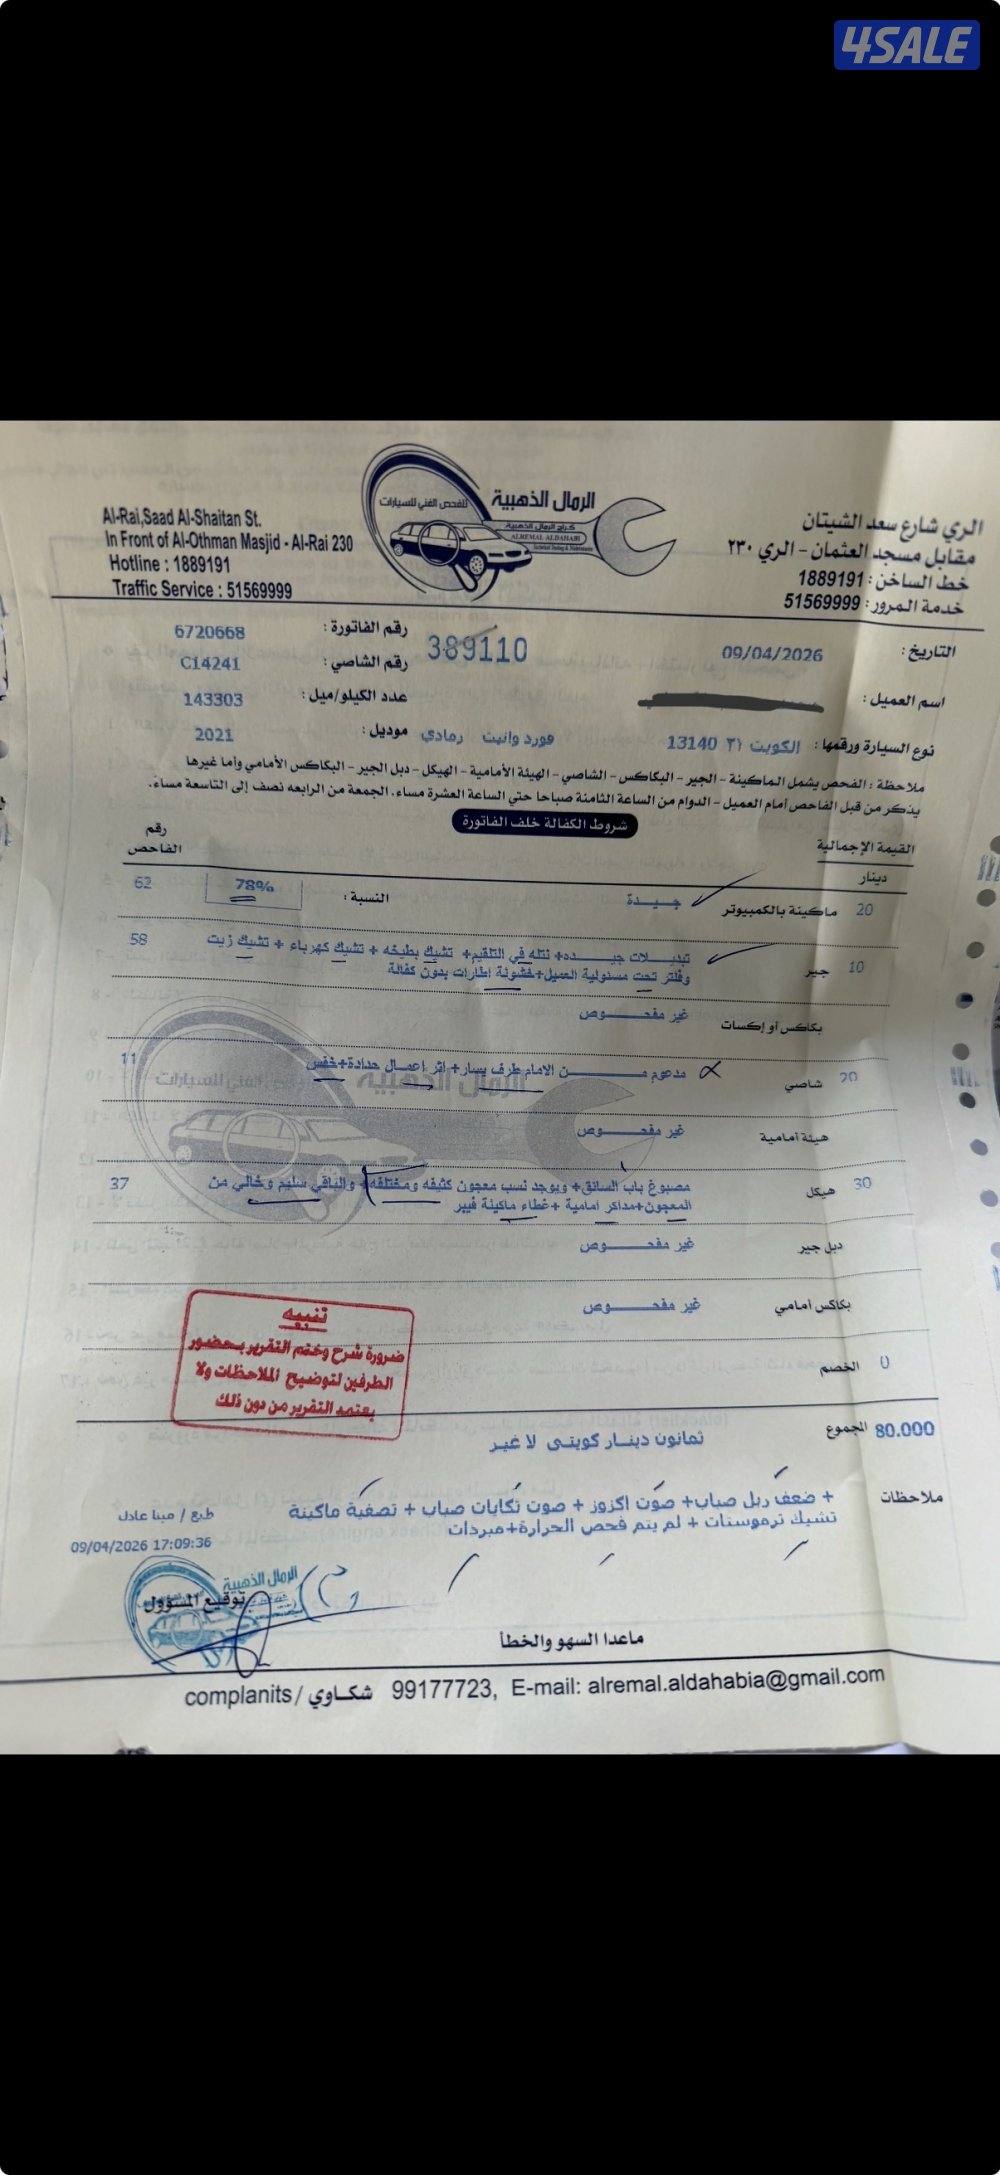 4SALE
الرمال الذهبية
للفحص الفني للسيارات
كراج الرمال الذهبية
ALREMAL ALDAHABI
Technical Testing & Maintenance
Al-Rai,Saad Al-Shaitan St.
In Front of Al-Othman Masjid - Al-Rai 230
Hotline : 1889191
Traffic Service : 51569999
الري شارع سعد الشيتان
مقابل مسجد العثمان - الري ٢٣٠
خط الساخن: 1889191
خدمة المرور: 51569999
التاريخ: 09/04/2026
389110
رقم الفاتورة: 6720668
رقم الشاصي: C14241
اسم العميل:
عدد الكيلو/ميل: 143303
نوع السيارة ورقمها: الكويت ٣١ 13140 فورد وانيت رمادي
موديل: 2021
ملاحظة : الفحص يشمل الماكينة - الجير - البكاكس - الشاصي - الهيئة الأمامية - الهيكل - دبل الجير - البكاكس الأمامي وأما غيرها
يذكر من قبل الفاحص أمام العميل - الدوام من الساعة الثامنة صباحا حتي الساعة العشرة مساء. الجمعة من الرابعه نصف إلى التاسعة مساء.
شروط الكفالة خلف الفاتورة
القيمة الإجمالية
دينار
رقم الفاحص
20 ماكينة بالكمبيوتر جيدة النسبة: 78% 62
10 جير تبديلات جيده+ نتله في التلقيم+ تشيك بطيخه + تشيك كهرباء + تشيك زيت 58
وفلتر تحت مسئولية العميل+خشونة إطارات بدون كفالة
بكاكس أو إكسات غير مفحوص
20 شاصي مدعوم من الامام طرف يسار+ اثر اعمال حدادة+خفس 11
هيئة أمامية غير مفحوص
30 هيكل مصبوغ باب السائق+ ويوجد نسب معجون كثيفه ومختلفه+ والباقي سليم وخالي من 37
المعجون+مداكر امامية +غطاء ماكينة فيبر
دبل جير غير مفحوص
بكاكس أمامي غير مفحوص
0 الخصم
تنبيه
ضرورة شرح وختم التقرير بحضور
الطرفين لتوضيح الملاحظات ولا
يعتمد التقرير من دون ذلك
80.000 المجموع ثمانون دينار كويتى لا غير
ملاحظات + ضعف ربل صباب+ صوت اكزوز + صوت تكايات صباب + تصفية ماكينة
تشيك ترموستات + لم يتم فحص الحرارة+مبردات
طبع / مينا عادل
09/04/2026 17:09:36
الرمال الذهبية
توقيع المسؤول
ماعدا السهو والخطأ
complanits/ شكاوي 99177723, E-mail: alremal.aldahabia@gmail.com